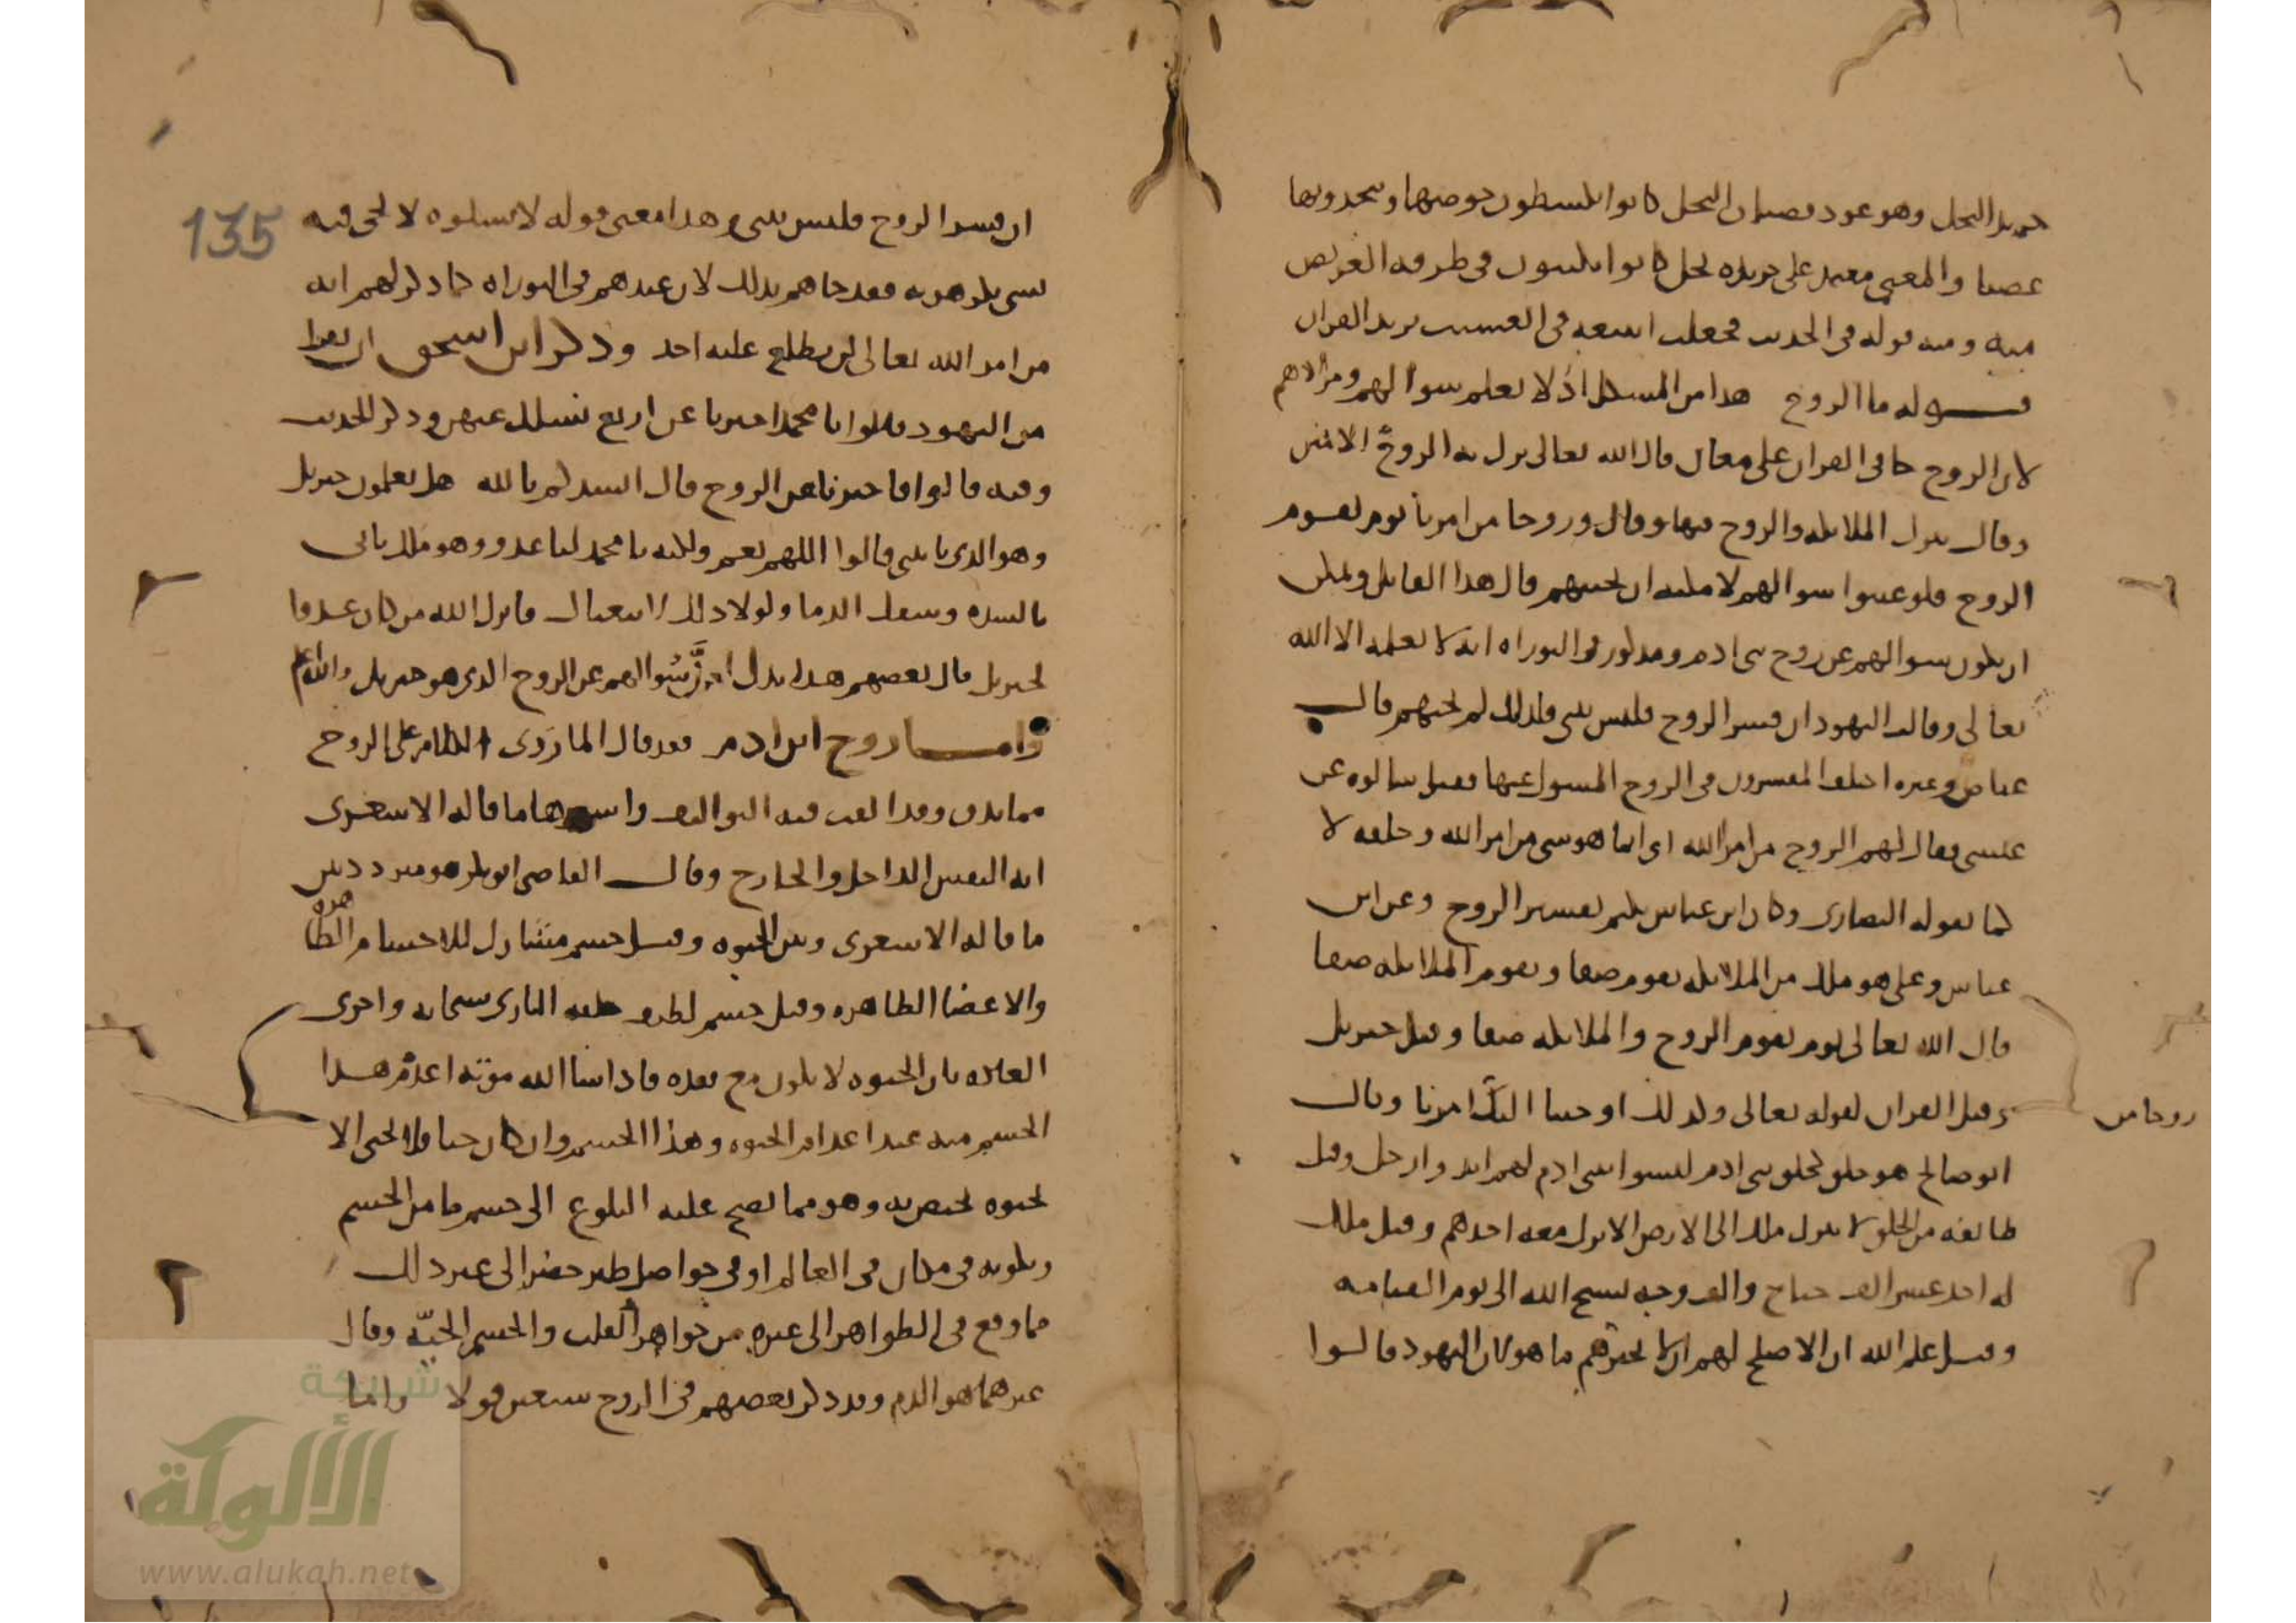 جريد النخل وهو عود قضبان النخل كانوا يكشطون خوصها ويتخذونها
عصيا والمعنى معتمد على جريدة نخل كانوا يكتبون في طرفه العريض
منه ومنه قوله في الحديث فجعلت اتتبعه في العسب يريد القران
قوله ما الروح هذا من المشكل اذ لا نعلم سوالهم ومرادهم
لان الروح جا في القران على معان قال الله تعالى نزل به الروح الامين
وقال تنزل الملائكة والروح فيها وقال وروحا من امرنا يوم يقوم
الروح فلو عينوا سوالهم لامكنه ان يجيبهم قال هذا القايل ويمكن
ان يكون سوالهم عن روح بني ادم ومذكور في التوراه انه لا يعلمه الا الله
تعالى وقالت اليهود ان فسر الروح فليس بنبي فلذلك لم يجبهم قال
عياض وغيره اختلف المفسرون في الروح المسول عنها فقيل سالوه عن
عيسى فقال لهم الروح من امر الله اي انما هو شي من امر الله وخلقه لا
كما يقوله النصارى وكان ابن عباس يكتم تفسير الروح وعن ابن
عباس وعلى هو ملك من الملائكة يقوم صفا وتقوم الملائكة صفا
قال الله تعالى يوم يقوم الروح والملائكة صفا وقيل جبريل
وقيل القران لقوله تعالى وكذلك اوحينا اليك امرنا وقال
روحا من
ابو صالح هو خلق كخلق بني ادم ليسوا ببني ادم لهم ايد وارجل وقيل
طايفه من الخلق لا ينزل ملك الى الارض الا نزل معه احدهم وقيل ملك
له احد عشر الف جناح والف وجه يسبح الله الى يوم القيامه
وقيل علم الله ان الاصلح لهم ان لا يخبرهم ما هو لان اليهود قالوا
135
ان فسر الروح فليس بنبي وهذا معنى قوله لا تسلوه لا يجي فيه
بشي تكرهونه فقد جاهم بذلك لان عندهم في التوراه كما ذكر لهم انه
من امر الله تعالى لن يطلع عليه احد وذكر ابن اسحق ان نفرا
من اليهود قالوا يا محمد اخبرنا عن اربع نسلك عنهن وذكر الحديث
وفيه قالوا فاخبرنا عن الروح قال انشدكم بالله هل تعلمون جبريل
وهو الذي ياتيني قالوا اللهم نعم ولكنه يا محمد لنا عدو وهو ملك ياتي
بالشده وسفك الدما ولولا ذلك لاتبعناك فانزل الله من كان عدوا
لجبريل قال بعضهم هذا يدل ان سوالهم عن الروح الذي هو جبريل والله اعلم
واما روح ابن ادم فقد قال المازري الكلام على الروح
مما يدق وقد الفت فيه التواليف واشهرها ما قاله الاشعري
انه النفس الداخل والخارج وقال القاضي ابو بكر هو متردد بين
ما قاله الاشعري وبين الحيوه وقيل جسم مشارك للاجسام الظاهره
والاعضا الظاهره وقيل جسم لطيف خلقه الباري سبحانه واجرى
العاده بان الحيوه لا تكون مع فقده فاذا شا الله موته اعدم هذا
الجسم منه عند اعدام الحيوه وهذا الجسم وان كان حيا فلا يحيى الا
بحيوه تختص به وهو مما يصح عليه البلوغ الى جسم ما من الجسم
وبكونه في مكان في العالم او في حواصل طير خضر الى غير ذلك
مما وقع في الظواهر الى غيره من جواهر القلب والجسم الحيّه وقال
غيرهما هو الدم وقد ذكر بعضهم في الروح سبعين قولا واما
شبكة
الألوكة
www.alukah.net